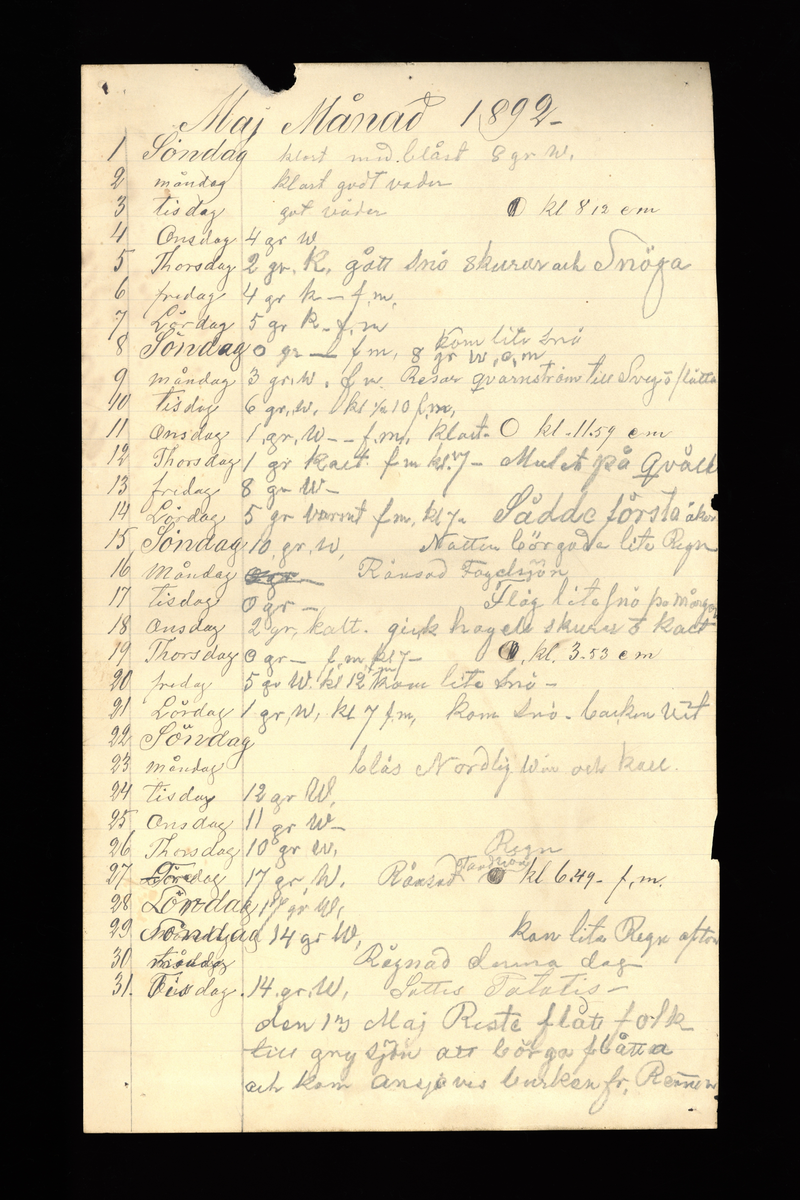 Maj Månad 1892-
1 Söndag klart med blåst 8 gr W.
2 måndag klart godt väder
3 tisdag got väder kl 8 12 e m
4 Onsdag 4 gr W
5 Thorsdag 2 gr. K. gått snö skurar och Snöga
6 fredag 4 gr k - f.m.
7 Lördag 5 gr K - f.m
8 Söndag 0 gr - f m, 8 gr W, e, m kom lite snö
9 måndag 3 gr. W. f m. Resar Qvarnström till Svegs flåtta
10 tisdig 6 gr. W. kl ½ 10 f.m,
11 Onsdag 1, gr, W - - f.m, klart. kl - 11.59 e m
12 Thorsdag 1 gr kalt. f m kl. 7 - Mulet på Qväll
13 fredag 8 gr W -
14 Lördag 5 gr varmt f m, kl 7 - Sådde första åker
15 Söndag 10, gr, W, Natten börgade lite Regn
16 Måndag Rånsad Fogelsjön
17 tisdag 0 gr - Flög lite snö på morgon
18 Onsdag 2 gr, kalt. gick hagels skurar kalt
19 Thorsdag 0 gr - f.m, kl 7 - kl. 3.53 e m
20 fredag 5 gr W. kl 12 kom lite snö -
21 Lördag 1 gr, W, kl 7 f,m, kom snö - backen Vit
22 Söndag
23 måndag blås Nordlig Win och kall.
24 tisdag 12 gr W,
25 Onsdag 11 gr W -
26 Thorsdag 10 gr W, Regn
27 17 gr, W. Rånsad Tandsjön kl 6.49 - f, m.
28 Lördag 17 gr W,
29 Söndag 14 gr W, kom lite Regn afton
30 måndag Rågnad denna dag
31. Tisdag. 14. gr. W, Sattes Patatis -
den 13 Maj Reste flått folk
till gry sjön att börga flåtta
och kom ansjovis burken fr,